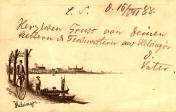 d. 16/VII 88.
Herzlichen Gruss von Deinen
Eltern & Geschwistern aus Helsingör
d.
Vater
Helsingör